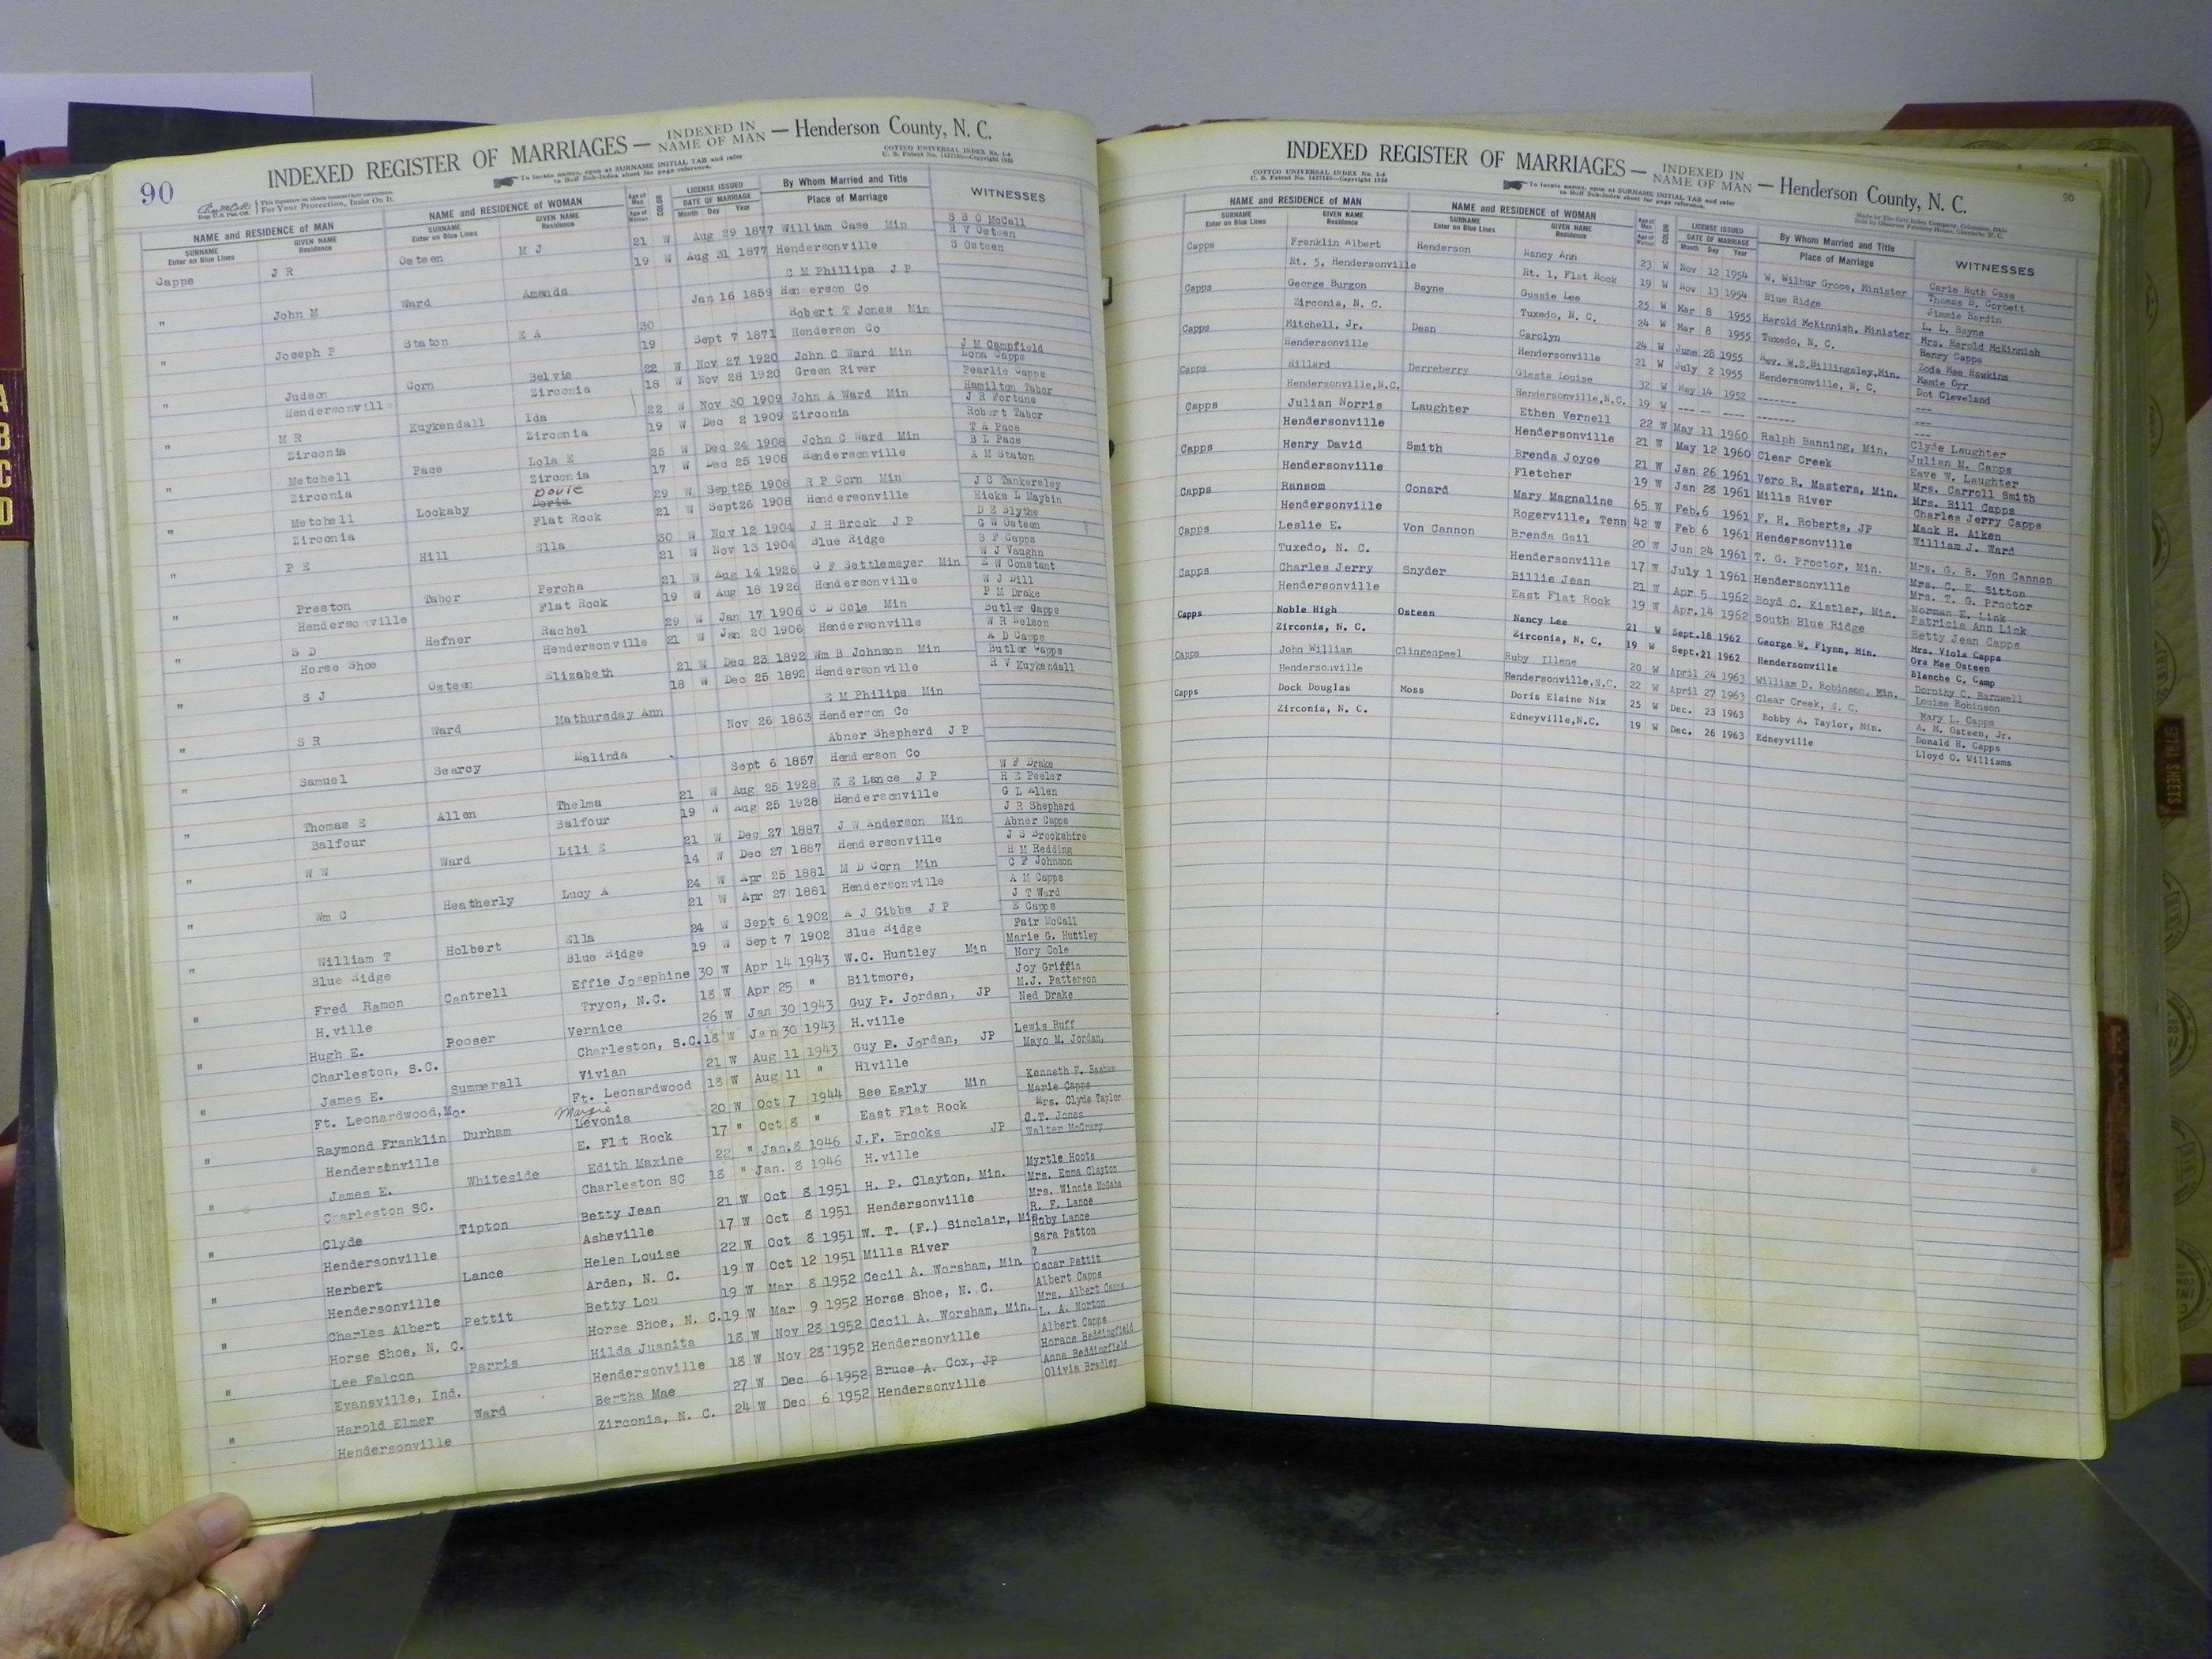 90
INDEXED REGISTER OF MARRIAGES — INDEXED IN NAME OF MAN — Henderson County, N. C.
To locate names, open at SURNAME INITIAL TAB and refer to Buff Sub-Index sheet for page reference.
COTTCO UNIVERSAL INDEX No. 1-4
For Your Protection, Insist On It.
NAME and RESIDENCE OF MAN NAME and RESIDENCE OF WOMAN LICENSE ISSUED By Whom Married and Title WITNESSES
SURNAME Enter on Blue Lines GIVEN NAME Residence SURNAME Enter on Blue Lines GIVEN NAME Residence Age of Man Age of Woman COLOR DATE OF MARRIAGE Month Day Year Place of Marriage
Capps J R Osteen M J 21 W Aug 29 1877 William Case Min S B O McCall
R V Osteen
19 W Aug 31 1877 Hendersonville S Osteen
" John M Ward Amanda C M Phillips J P
Jan 16 1859 Henderson Co
" Joseph P Staton E A 30 Robert T Jones Min
19 Sept 7 1871 Henderson Co
" Judson Corn Belvie 22 W Nov 27 1920 John C Ward Min J M Campfield
Lona Capps
Hendersonville Zirconia 18 W Nov 28 1920 Green River Pearlie Capps
" M R Kuykendall Ida 22 W Nov 30 1909 John A Ward Min Hamilton Tabor
J R Fortune
Zirconia Zirconia 19 W Dec 2 1909 Zirconia Robert Tabor
" Metchell Pace Lola E 25 W Dec 24 1908 John C Ward Min T A Pace
B L Pace
Zirconia Zirconia 17 W Dec 25 1908 Hendersonville A M Staton
" Metchell Lockaby Dovie Doris 29 W Sept25 1908 R P Corn Min J C Tankersley
Hicks L Maybin
Zirconia Flat Rock 21 W Sept26 1908 Hendersonville D E Blythe
" P E Hill Ella 30 W Nov 12 1904 J H Brock J P G W Osteen
B F Capps
21 W Nov 13 1904 Blue Ridge W J Vaughn
" Preston Tabor Percha 21 W Aug 14 1926 G F Settlemeyer Min E W Constant
W J Dill
Hendersonville Flat Rock 19 W Aug 18 1926 Hendersonville P M Drake
" S D Hefner Rachel 29 W Jan 17 1906 C D Cole Min Butler Capps
W R Nelson
Horse Shoe Hendersonville 21 W Jan 20 1906 Hendersonville A D Capps
" S J Osteen Elizabeth 21 W Dec 23 1892 Wm B Johnson Min Butler Capps
R V Kuykendall
18 W Dec 25 1892 Hendersonville
" S R Ward Mathursday Ann E M Philips Min
Nov 26 1863 Henderson Co
" Samuel Searcy Malinda Abner Shepherd J P
Sept 6 1857 Henderson Co
" Thomas E Allen Thelma 21 W Aug 25 1928 E E Lance J P W F Drake
H E Peeler
Balfour Balfour 19 W Aug 25 1928 Hendersonville G L Allen
" W W Ward Lili E 21 W Dec 27 1887 J W Anderson Min J R Shepherd
Abner Capps
14 W Dec 27 1887 Hendersonville J S Brookshire
" Wm C Heatherly Lucy A 24 W Apr 25 1881 M D Corn Min H M Redding
C F Johnson
21 W Apr 27 1881 Hendersonville A M Capps
" William T Holbert Ella 24 W Sept 6 1902 A J Gibbs J P J T Ward
E Capps
Blue Ridge Blue Ridge 19 W Sept 7 1902 Blue Ridge Fair McCall
" Fred Ramon Cantrell Effie Josephine 30 W Apr 14 1943 W.C. Huntley Min Marie G. Huntley
Nory Cole
H.ville Tryon, N.C. 18 W Apr 25 " Biltmore, Joy Griffin
" Hugh E. Pooser Vernice 26 W Jan 30 1943 Guy P. Jordan, JP M.J. Patterson
Ned Drake
Charleston, S.C. Charleston, S.C. 18 W Jan 30 1943 H.ville
" James E. Summerall Vivian 21 W Aug 11 1943 Guy P. Jordan, JP Lewis Ruff
Mayo M. Jordan,
Ft. Leonardwood,Mo. Ft. Leonardwood 18 W Aug 11 " Hlville
" Raymond Franklin Durham Margie Levonia 20 W Oct 7 1944 Bee Early Min Kenneth F.
Marie Capps
Hendersonville E. Flat Rock 17 " Oct 8 " East Flat Rock Mrs. Clyde Taylor
" James E. Whiteside Edith Maxine 22 " Jan.8 1946 J.F. Brooks JP J.T. Jones
Walter McCrary
Charleston SC. Charleston SC 18 " Jan. 8 1946 H.ville
" Clyde Tipton Betty Jean 21 W Oct 8 1951 H. P. Clayton, Min. Myrtle Hoots
Mrs. Emma Clayton
Hendersonville Asheville 17 W Oct 8 1951 Hendersonville Mrs. Winnie McGaha
" Herbert Lance Helen Louise 22 W Oct 8 1951 W. T. (F.) Sinclair, Min. R. F. Lance
Ruby Lance
Hendersonville Arden, N. C. 19 W Oct 12 1951 Mills River Sara Patton
" Charles Albert Pettit Betty Lou 19 W Mar 8 1952 Cecil A. Worsham, Min ?
Oscar Pettit
Horse Shoe, N. C. Horse Shoe, N. C. 19 W Mar 9 1952 Horse Shoe, N. C. Albert Capps
" Lee Falcon Parris Hilda Juanita 18 W Nov 28 1952 Cecil A. Worsham, Min. Mrs. Albert Capps
L. A. Norton
Evansville, Ind. Hendersonville 18 W Nov 28 1952 Hendersonville Albert Capps
" Harold Elmer Ward Bertha Mae 27 W Dec 6 1952 Bruce A. Cox, JP Horace Beddingfield
Anna Beddingfield
Hendersonville Zirconia, N. C. 24 W Dec 6 1952 Hendersonville Olivia Bradley
INDEXED REGISTER OF MARRIAGES — INDEXED IN NAME OF MAN — Henderson County, N. C.
90
COTTCO UNIVERSAL INDEX No. 1-4
To locate names, open at SURNAME INITIAL TAB and refer to Buff Sub-Index sheet for page reference.
NAME and RESIDENCE OF MAN NAME and RESIDENCE OF WOMAN LICENSE ISSUED By Whom Married and Title WITNESSES
SURNAME Enter on Blue Lines GIVEN NAME Residence SURNAME Enter on Blue Lines GIVEN NAME Residence Age of Man Age of Woman COLOR DATE OF MARRIAGE Month Day Year Place of Marriage
Capps Franklin Albert Henderson Nancy Ann 23 W Nov 12 1954 W. Wilbur Groce, Minister Carie Ruth Case
Thomas B. Corbett
Rt. 5, Hendersonville Rt. 1, Flat Rock 19 W Nov 13 1954 Blue Ridge Jimmie Hardin
Capps George Burgon Bayne Gussie Lee 25 W Mar 8 1955 Harold McKinnish, Minister L. L. Bayne
Mrs. Harold McKinnish
Zirconia, N. C. Tuxedo, N. C. 24 W Mar 8 1955 Tuxedo, N. C. Henry Capps
Capps Mitchell, Jr. Dean Carolyn 24 W June 28 1955 Rev. W.S.Billingsley,Min. Zoda Mae Hawkins
Mamie Orr
Hendersonville Hendersonville 21 W July 2 1955 Hendersonville, N. C. Dot Cleveland
Capps Hillard Derreberry Olesta Louise 32 W May 14 1952 ------- ---
---
Hendersonville,N.C. Hendersonville,N.C. 19 W --- -- ---- ----- ---
Capps Julian Norris Laughter Ethen Vernell 22 W May 11 1960 Ralph Banning, Min. Clyde Laughter
Julian M. Capps
Hendersonville Hendersonville 21 W May 12 1960 Clear Creek Eave W. Laughter
Capps Henry David Smith Brenda Joyce 21 W Jan 26 1961 Vero R. Masters, Min. Mrs. Carroll Smith
Mrs. Bill Capps
Hendersonville Fletcher 19 W Jan 28 1961 Mills River Charles Jerry Capps
Capps Ransom Conard Mary Magnaline 65 W Feb.6 1961 F. H. Roberts, JP Mack H. Aiken
William J. Ward
Hendersonville Rogerville, Tenn 42 W Feb 6 1961 Hendersonville
Capps Leslie E. Von Cannon Brenda Gail 20 W Jun 24 1961 T. G. Proctor, Min. Mrs. G. B. Von Cannon
Mrs. C. E. Sitton
Tuxedo, N. C. Hendersonville 17 W July 1 1961 Hendersonville Mrs. T. G. Proctor
Capps Charles Jerry Snyder Billie Jean 21 W Apr 5 1962 Boyd C. Kistler, Min. Norman E. Link
Patricia Ann Link
Hendersonville East Flat Rock 19 W Apr.14 1962 South Blue Ridge Betty Jean Capps
Capps Noble High Osteen Nancy Lee 21 W Sept.18 1962 George W. Flynn, Min. Mrs. Viola Capps
Ora Mae Osteen
Zirconia, N. C. Zirconia, N. C. 19 W Sept.21 1962 Hendersonville Blanche C. Camp
Capps John William Clingenpeel Ruby Illene 20 W April 24 1963 William D. Robinson, Min. Dorothy C. Barnwell
Louise Robinson
Hendersonville Hendersonville,N.C. 22 W April 27 1963 Clear Creek, N. C. Mary L. Capps
Capps Dock Douglas Moss Doris Elaine Nix 25 W Dec. 23 1963 Bobby A. Taylor, Min. A. M. Osteen, Jr.
Donald H. Capps
Zirconia, N. C. Edneyville,N.C. 19 W Dec. 26 1963 Edneyville Lloyd O. Williams
A
B
C
D